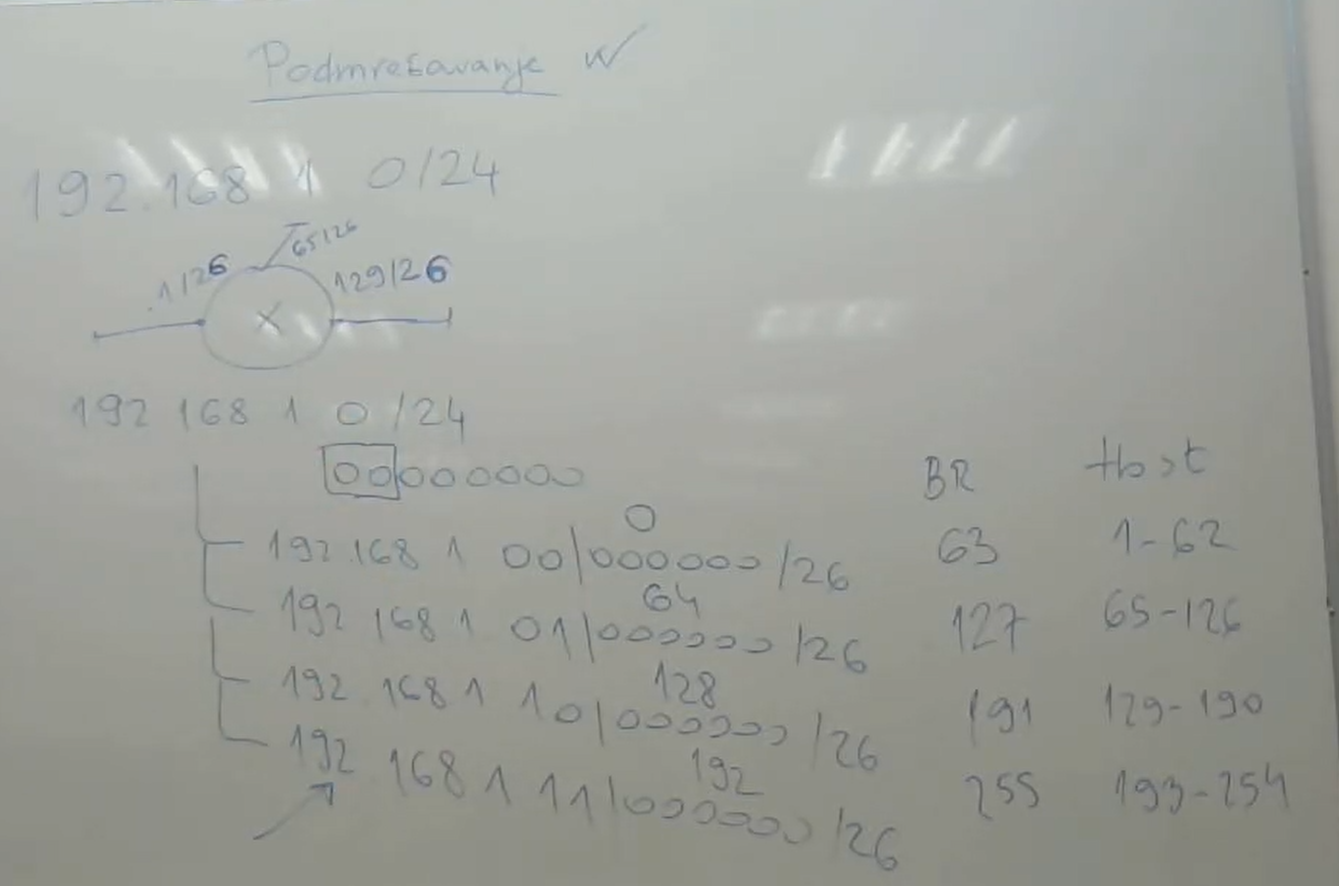 Podmrežavanje
192.168 1 0/24
65/26
.1/26
129/26
X
192 168 1 0 /24
00000000
BR Host
0
192.168 1 00/000000 /26 63 1-62
64
192 168 1 01/000000 /26 127 65-126
128
192.168 1 10/000000 /26 191 129-190
192
192 168 1 11/000000 /26 255 193-254